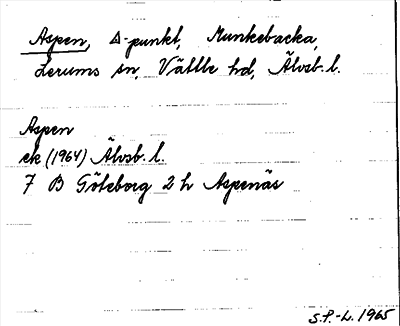 Aspen, △-punkt, Munkebacka,
Lerums sn, Vättle hd, Älvsb. l.
Aspen
ek (1964) Älvsb. l.
7 B Göteborg 2 h Aspenäs
S.P.-L. 1965